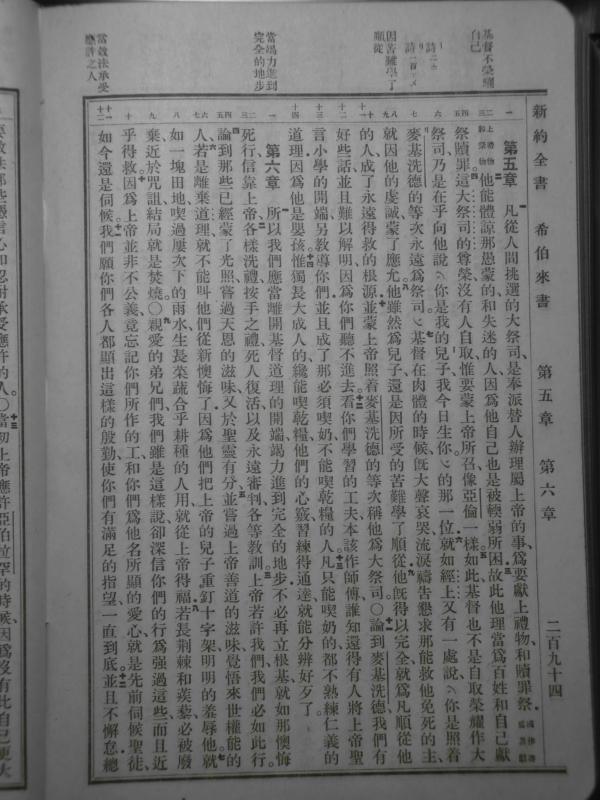 新約全書 希伯來書 第五章 第六章 二百九十四
基督不榮耀自己
因苦難學了順從
當竭力進到完全的地步
第五章 凡從人間挑選的大祭司是奉派替人辦理屬上帝的事、爲要獻上禮物和贖罪祭
他能體諒那愚蒙的和失迷的人因爲他自己也是被輭弱所困故此他理當爲百姓和自己獻
祭贖罪這大祭司的尊榮沒有人自取惟要蒙上帝所召像亞倫一樣如此基督也不是自取榮耀作大
祭司乃是在乎向他說、你是我的兒子我今日生你、的那一位就如經上又有一處說、你是照着
麥基洗德的等次永遠爲祭司、基督在肉體的時候旣大聲哀哭流淚禱告懇求那能救他免死的主、
就因他的虔誠蒙了應允他雖然爲兒子還是因所受的苦難學了順從他旣得以完全就爲凡順從他
的人成了永遠得救的根源並蒙上帝照着麥基洗德的等次稱他爲大祭司○論到麥基洗德我們有
好些話並且難以解明因爲你們聽不進去看你們學習的工夫本該作師傅誰知還得有人將上帝聖
言小學的開端另教導你們並且成了那必須喫奶不能喫乾糧的人凡只能喫奶的都不熟練仁義的
道理因爲他是嬰孩惟獨長大成人的纔能喫乾糧他們的心竅習練得通達就能分辨好歹了。
第六章 所以我們應當離開基督道理的開端竭力進到完全的地步不必再立根基就如那懊悔
死行信靠上帝各樣洗禮按手之禮死人復活以及永遠審判各等教訓上帝若許我們我們必如此行。
論到那些已經蒙了光照嘗過天恩的滋味又於聖靈有分並嘗過上帝善道的滋味覺悟來世權能的
人若是離棄道理就不能叫他們從新懊悔了因爲他們把上帝的兒子重釘十字架明明的羞辱他就
如一塊田地喫過屢次下的雨水生長菜蔬合乎耕種的人用就從上帝得福若長荆棘和蒺藜必被廢
棄近於咒詛結局就是焚燒○親愛的弟兄們我們雖是這樣說卻深信你們的行爲強過這些而且近
乎得救因爲上帝並非不公義竟忘記你們所作的工和你們爲他名所顯的愛心就是先前伺候聖徒
如今還是伺候我們願你們各人都顯出這樣的殷勤使你們有滿足的指望一直到底並且不懈怠總